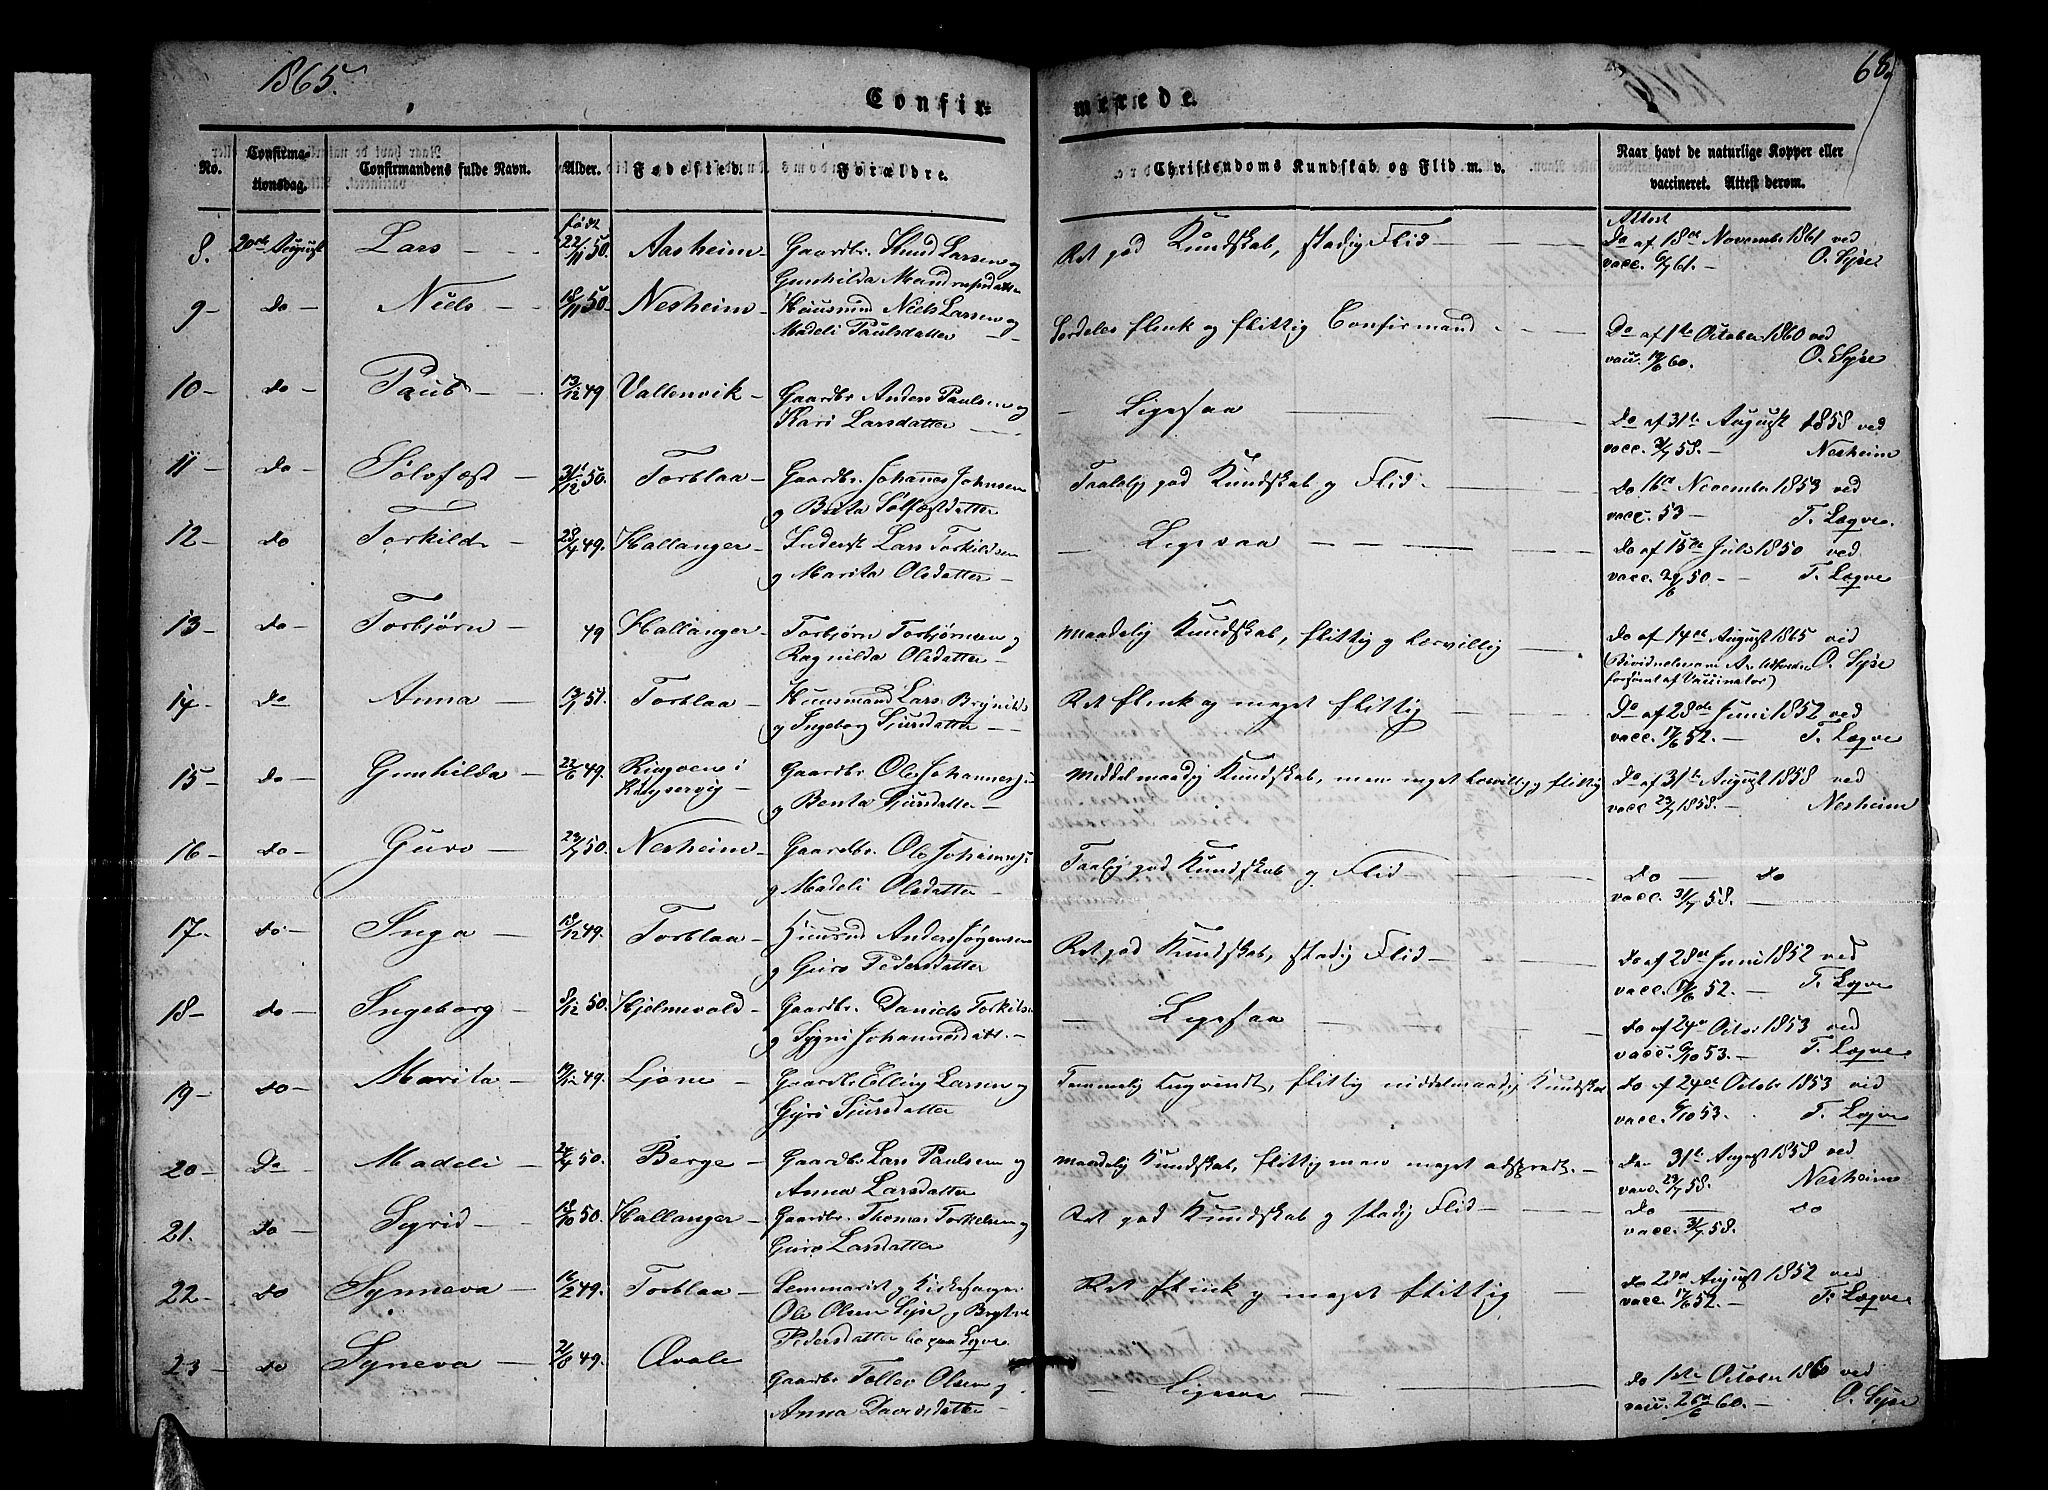 1865.
68.
Confir-
merede.
No.
Confirma-
tionsdag.
Confirmandens fulde Navn.
Alder.
Fødested.
Forældre.
Christendoms Kundskab og Flid m. v.
Naar havt de naturlige Kopper eller
vaccineret. Attest derom.
8. 20de August Lars født 22/11 50. Aasheim Gaardbr. Knud Larsen og
Gunhilda Mandrupsdatter
Ret god Kundskab, stadig Flid
Attest
Do af 18de November 1861 ved
vacc. 6/7 61. O. Syse
9 do Niels 18/11 50. Nesheim Huusmd Niels Larsen og
Madeli Paulsdatter
Særdeles flink og flittig Confirmand
Do af 1ste October 1860 ved
vacc. 19/6 60. O. Syse
10 do Paul 13/12 49 Vallenvik Gaardbr. Anders Paulsen og
Kari Larsdatter
Ligesaa
Do af 31te August 1858 ved
vacc. 58. Nesheim
11 do Sølvfæst 31/12 50. Torblaa Gaardbr. Johannes Johnsen
og Brita Sølfæstdatter
Taalelig god Kundskab og Flid
Do 16de November 1853 ved
vacc. 53 T. Lægre
12 do Torkild 23/4 49. Hallanger Inderst Lars Torkildsen
og Marita Olsdatter
Ligesaa
Do af 15de Juli 1850 ved
vacc. 29/6 50. T. Lægre
13 do Torbjørn 49 Hallanger Torbjørn Torbjørnsen og
Ragnilda Olsdatter
Maadelig Kundskab, flittig og lærvillig
Do af 14de August 1865 ved
O. Syse
af Vaccinator)
14 do Anna 51. Torblaa Huusmand Lars Brynilds
og Ingeborg Sjursdatter
Ret flink og meget flittig
Do af 28de Juni 1852 ved
vacc. 17/6 52. T. Lægre
15 do Gunhilda 22/6 49. Ringøen i
Gaardbr. Ole Johannesen
og Benta Sjursdatter
Middelmaadig Kundskab, men meget lærvillig og flittig
Do af 31te August 1858 ved
vacc. 23/7 1858. Nesheim
16 do Guro 29/7 50. Nesheim Gaardbr. Ole Johannesen
og Madeli Olsdatter
Taalig god Kundskab og Flid
do do
vacc. 31/7 58.
17. do Inga 18/12 49. Torblaa Huusmd Anders Jørgensen
og Guro Pedersdatter
Ret god Kundskab, stadig Flid
do af 28de Juni 1852 ved
vacc. 17/6 52. T. Lægre
18 do Ingeborg 8/12 50. Hjelmevold Gaardbr. Daniels Torkilsen
og Sygni Johannesdatt.
Ligesaa
do af 24de October 1853 ved
vacc. 6/10 53. T. Lægre
19 do Marita 19/12 49. Ljone Gaardbr. Elling Larsen og
Gyri Sjursdatter
Temmelig flittig middelmaadig Kundskab
do af 24de October 1853 ved
vacc. 6/10 53. T. Lægre
20 Do Madeli 50. Berge Gaardbr. Lars Paulsen og
Anna Larsdatter
Maadelig Kundskab, flittig men meget adspredt.
31te August 1858 ved
vacc. 23/7 58. Nesheim
21. do Syrid 18/10 50. Hallanger Gaardbr. Thomas Torkelsen og
Guro Larsdatter
Ret god Kundskab og stadig Flid
do do
vacc. 31/7 58.
22 do Synneva 16/12 49. Torblaa Seminarist og Kirkesanger
Ole Olsen Syse og
Pedersdatter bo paa Lægre
Ret flink og meget flittig
do August 1852 ved
vacc. 17/6 52. T. Lægre
23 do Syneva 21/8 49. Qvale Gaardbr. Tollev Olsen og
Anna Davidsdatter
Ligesaa
do 1ste October 1860 ved
vacc. 26/6 60. O. Syse